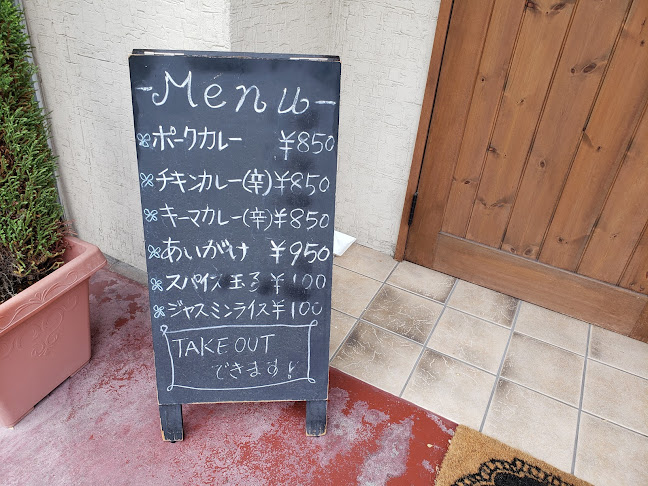 -Menu-
ポークカレー ¥850
チキンカレー(辛)¥850
キーマカレー(辛)¥850
あいがけ ¥950
スパイス玉子 ¥100
ジャスミンライス¥100
TAKE OUT
できます!